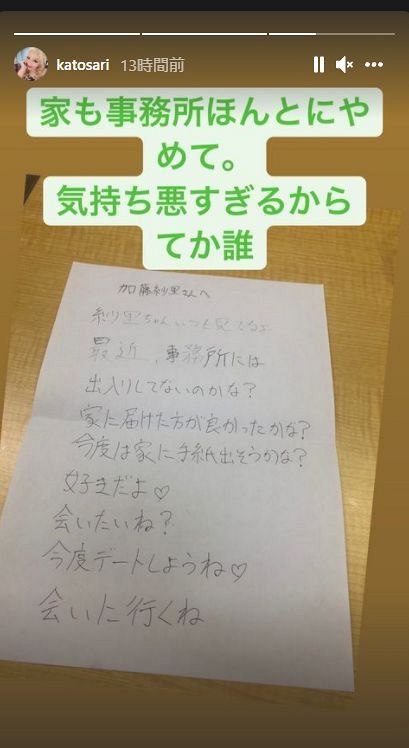 katosari 13時間前
家も事務所ほんとにや
めて。
気持ち悪すぎるから
てか誰
加藤紗里さんへ
紗里ちゃんいつも見てるよ
最近、事務所には
出入りしてないのかな?
家に届けた方が良かったかな?
今度は家に手紙出そうかな?
好きだよ♡
会いたいね?
今度デートしようね♡
会いに行くね